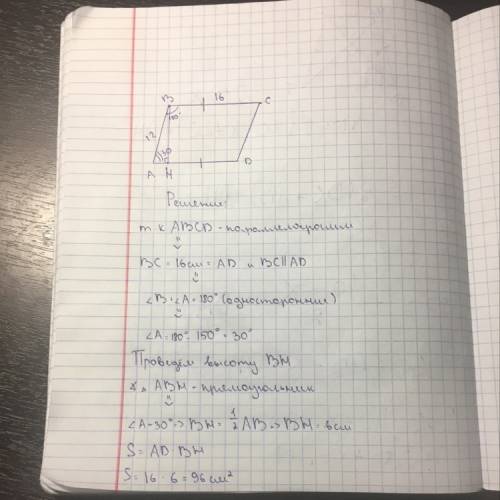 B 16 C
150°
12
30
A H D
Решение:
т.к ABCD - параллелограмм
⇓
BC = 16см = AD и BC||AD
⇓
∠B+∠A=180° (односторонние)
⇓
∠A=180°-150°=30°
Проведём высоту BH
ABH - прямоугольник
⇓
∠A=30° => BH = 1/2 AB => BH = 6см
S = AD · BH
S = 16 · 6 = 96 см²